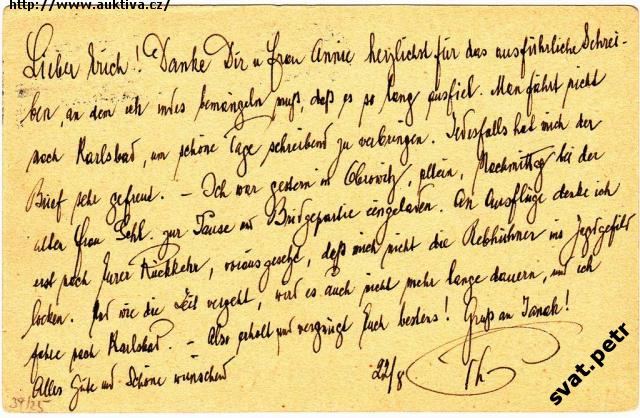 http://www.auktiva.cz/
Lieber Erich! Danke Dir u Frau Annie herzlichst für das ausführliche Schrei-
ben, an dem ich indes bemängeln muß, daß es so lang ausfiel. Man fährt nicht
nach Karlsbad, um schöne Tage schreibend zu verbringen. Jedesfalls hat mich der
Brief sehr gefreut. – Ich war gestern in Obrowitz, allein, Nachmittag bei der
alten Frau Sehl. zur Jause und Bridgepartie eingeladen. An Ausflüge denke ich
erst nach Eurer Rückkehr, vorausgesetzt, daß mich nicht die Rebhühner ins Jagdgefild
locken. Und wie die Zeit vergeht, wird es auch nicht mehr lange dauern, und ich
fahre nach Karlsbad. – Also erholt und vergnügt Euch bestens! Gruß an Janak!
Alles Gute und Schöne wünschend
22/8
Th
39/25
svat.petr